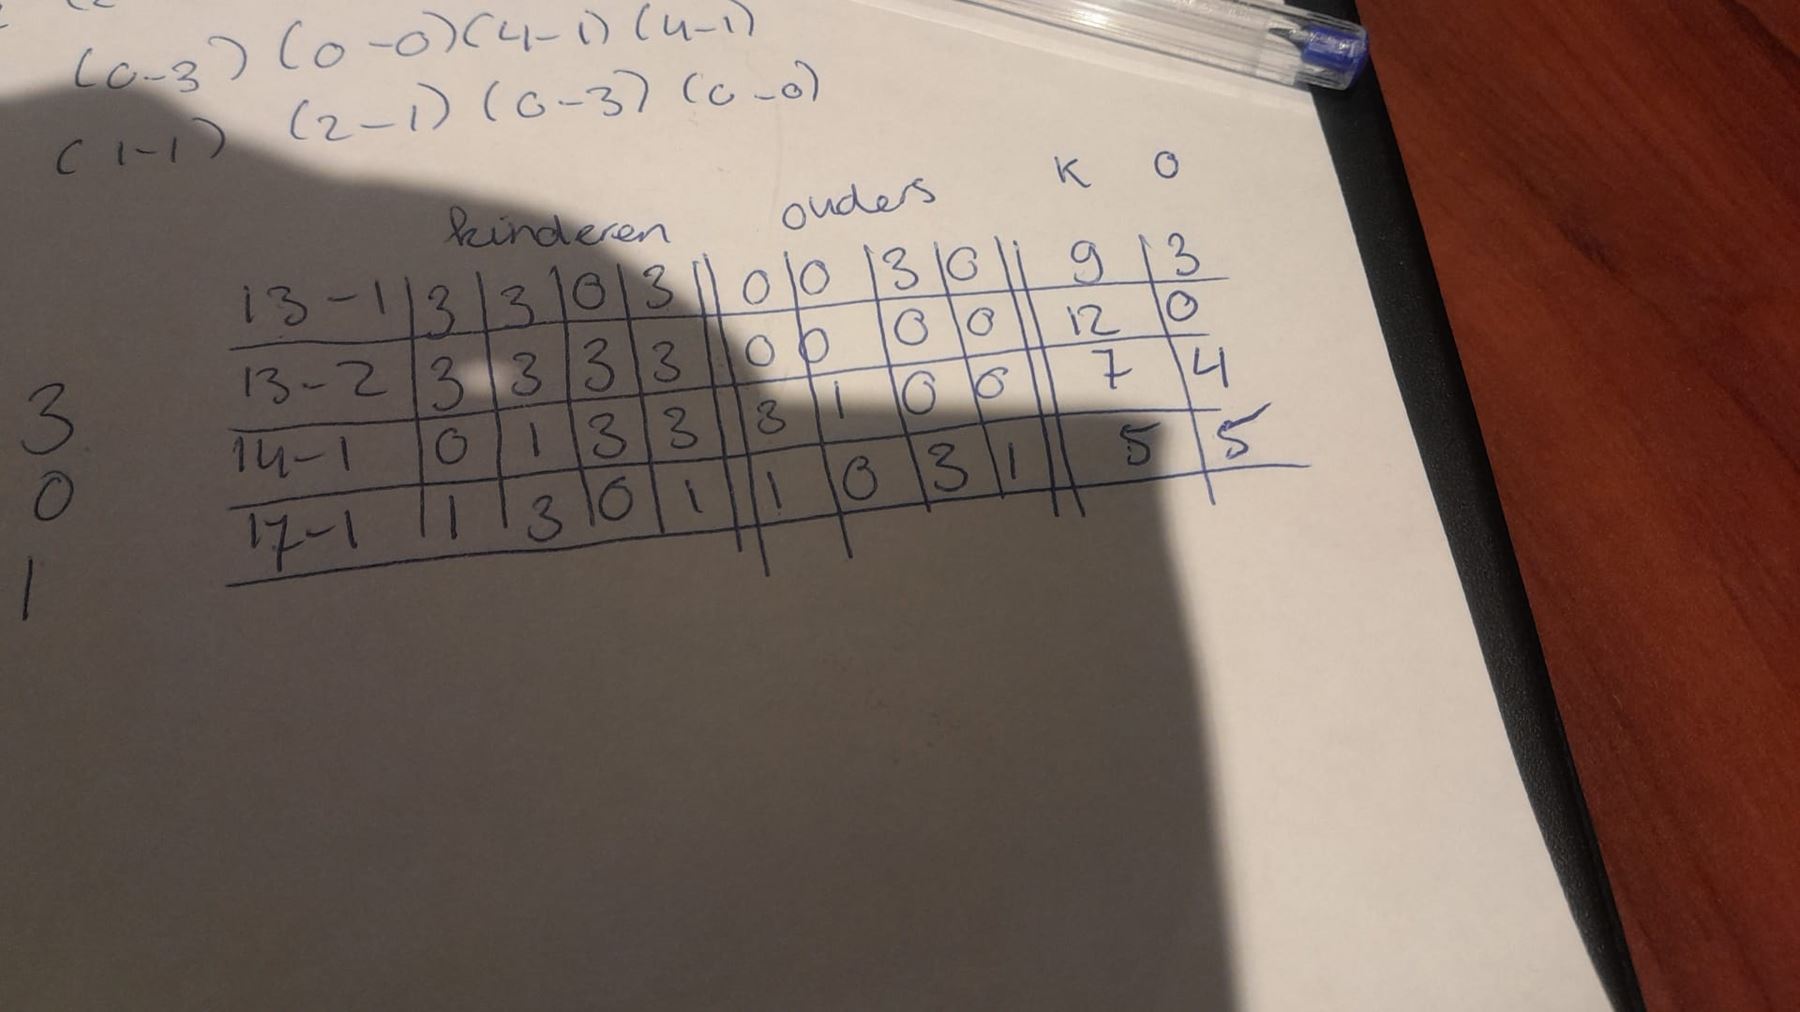 (0-3) (0-0) (4-1) (4-1)
(1-1) (2-1) (0-3) (0-0)
kinderen ouders K O
13-1 3 3 0 3 0 0 3 0 9 3
13-2 3 3 3 3 0 0 0 0 12 0
14-1 0 1 3 3 3 1 0 0 7 4
17-1 1 3 0 1 1 0 3 1 5 5
3
0
1